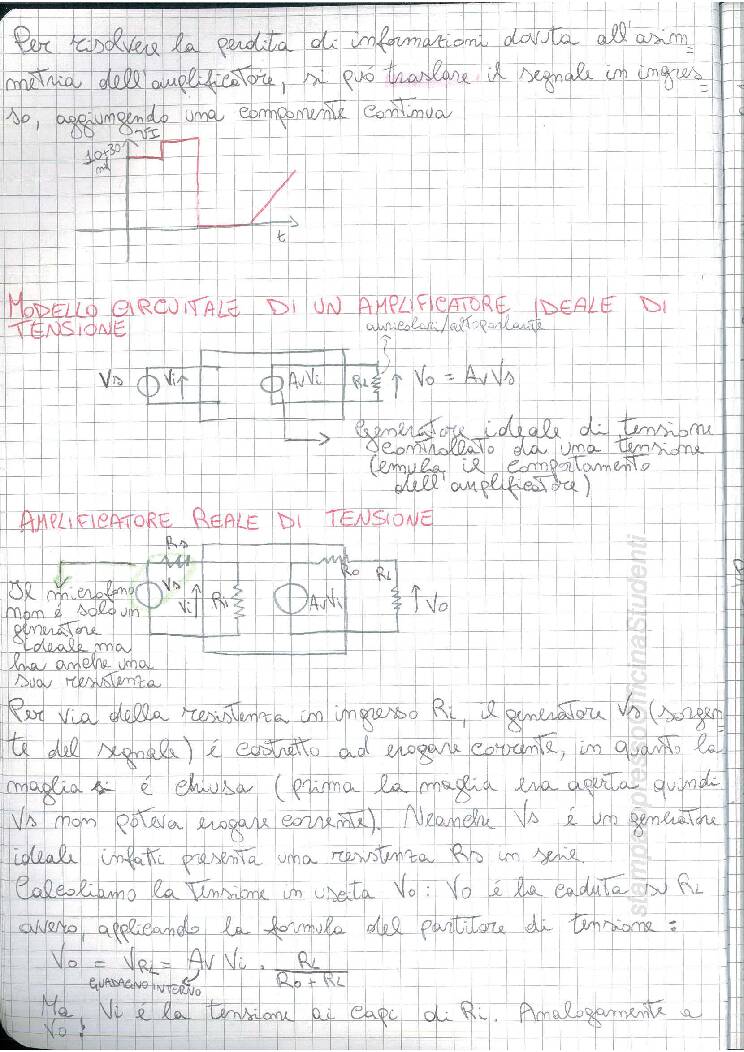 Per risolvere la perdita di informazioni dovuta all'asim=
metria dell'amplificatore, si può traslare il segnale in ingres=
so, aggiungendo una componente continua
VI
10+30
mV
t
MODELLO CIRCUITALE DI UN AMPLIFICATORE IDEALE DI
TENSIONE
auricolari/altoparlante
Vs Vi AvVi RL Vo = AvVs
Generatore ideale di tensione
controllato da una tensione
(emula il comportamento
dell'amplificatore)
AMPLIFICATORE REALE DI TENSIONE
Rs
Vs Vi Ri AvVi Ro RL Vo
Il microfono
non é solo un
generatore
ideale ma
ha anche una
sua resistenza
Per via della resistenza in ingresso Ri, il generatore Vs (sorgen=
te del segnale) é costretto ad erogare corrente, in quanto la
maglia é chiusa (prima la maglia era aperta quindi
Vs non poteva erogare corrente). Neanche Vs é un generatore
ideale infatti presenta una resistenza Rs in serie
Calcoliamo la tensione in uscita Vo: Vo é la caduta su RL
ovvero, applicando la formula del partitore di tensione:
Vo = VRL = Av Vi · RL / Ro + RL
GUADAGNO INTERNO
Ma Vi é la tensione ai capi di Ri. Analogamente a
Vo:
stampato presso OfficinaStudenti